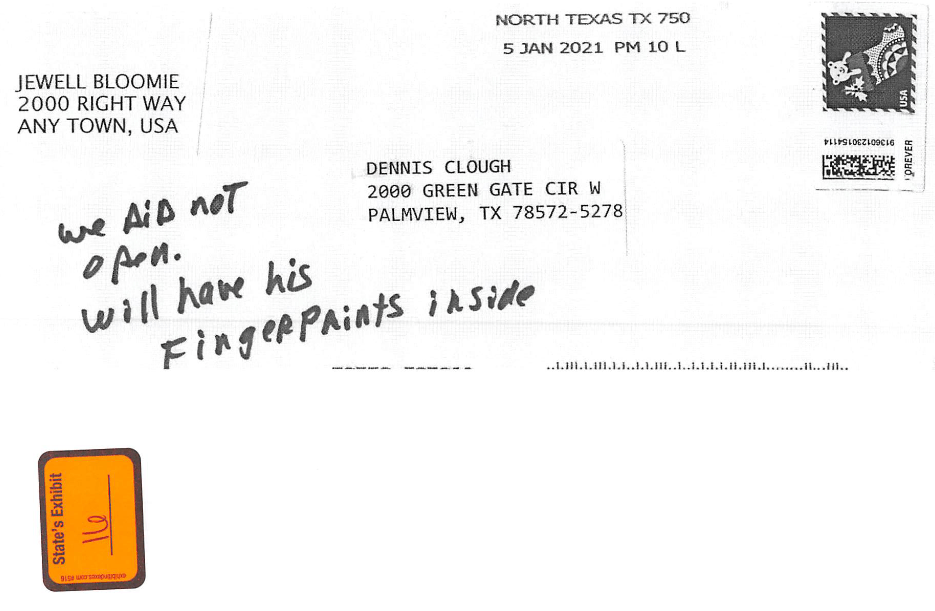 NORTH TEXAS TX 750
5 JAN 2021 PM 10 L
JEWELL BLOOMIE
2000 RIGHT WAY
ANY TOWN, USA
USA
913601230154114
FOREVER
DENNIS CLOUGH
2000 GREEN GATE CIR W
PALMVIEW, TX 78572-5278
we DiD not
open.
will have his
FingerPrints inside
State's Exhibit
16
exhibitindexes.com #516